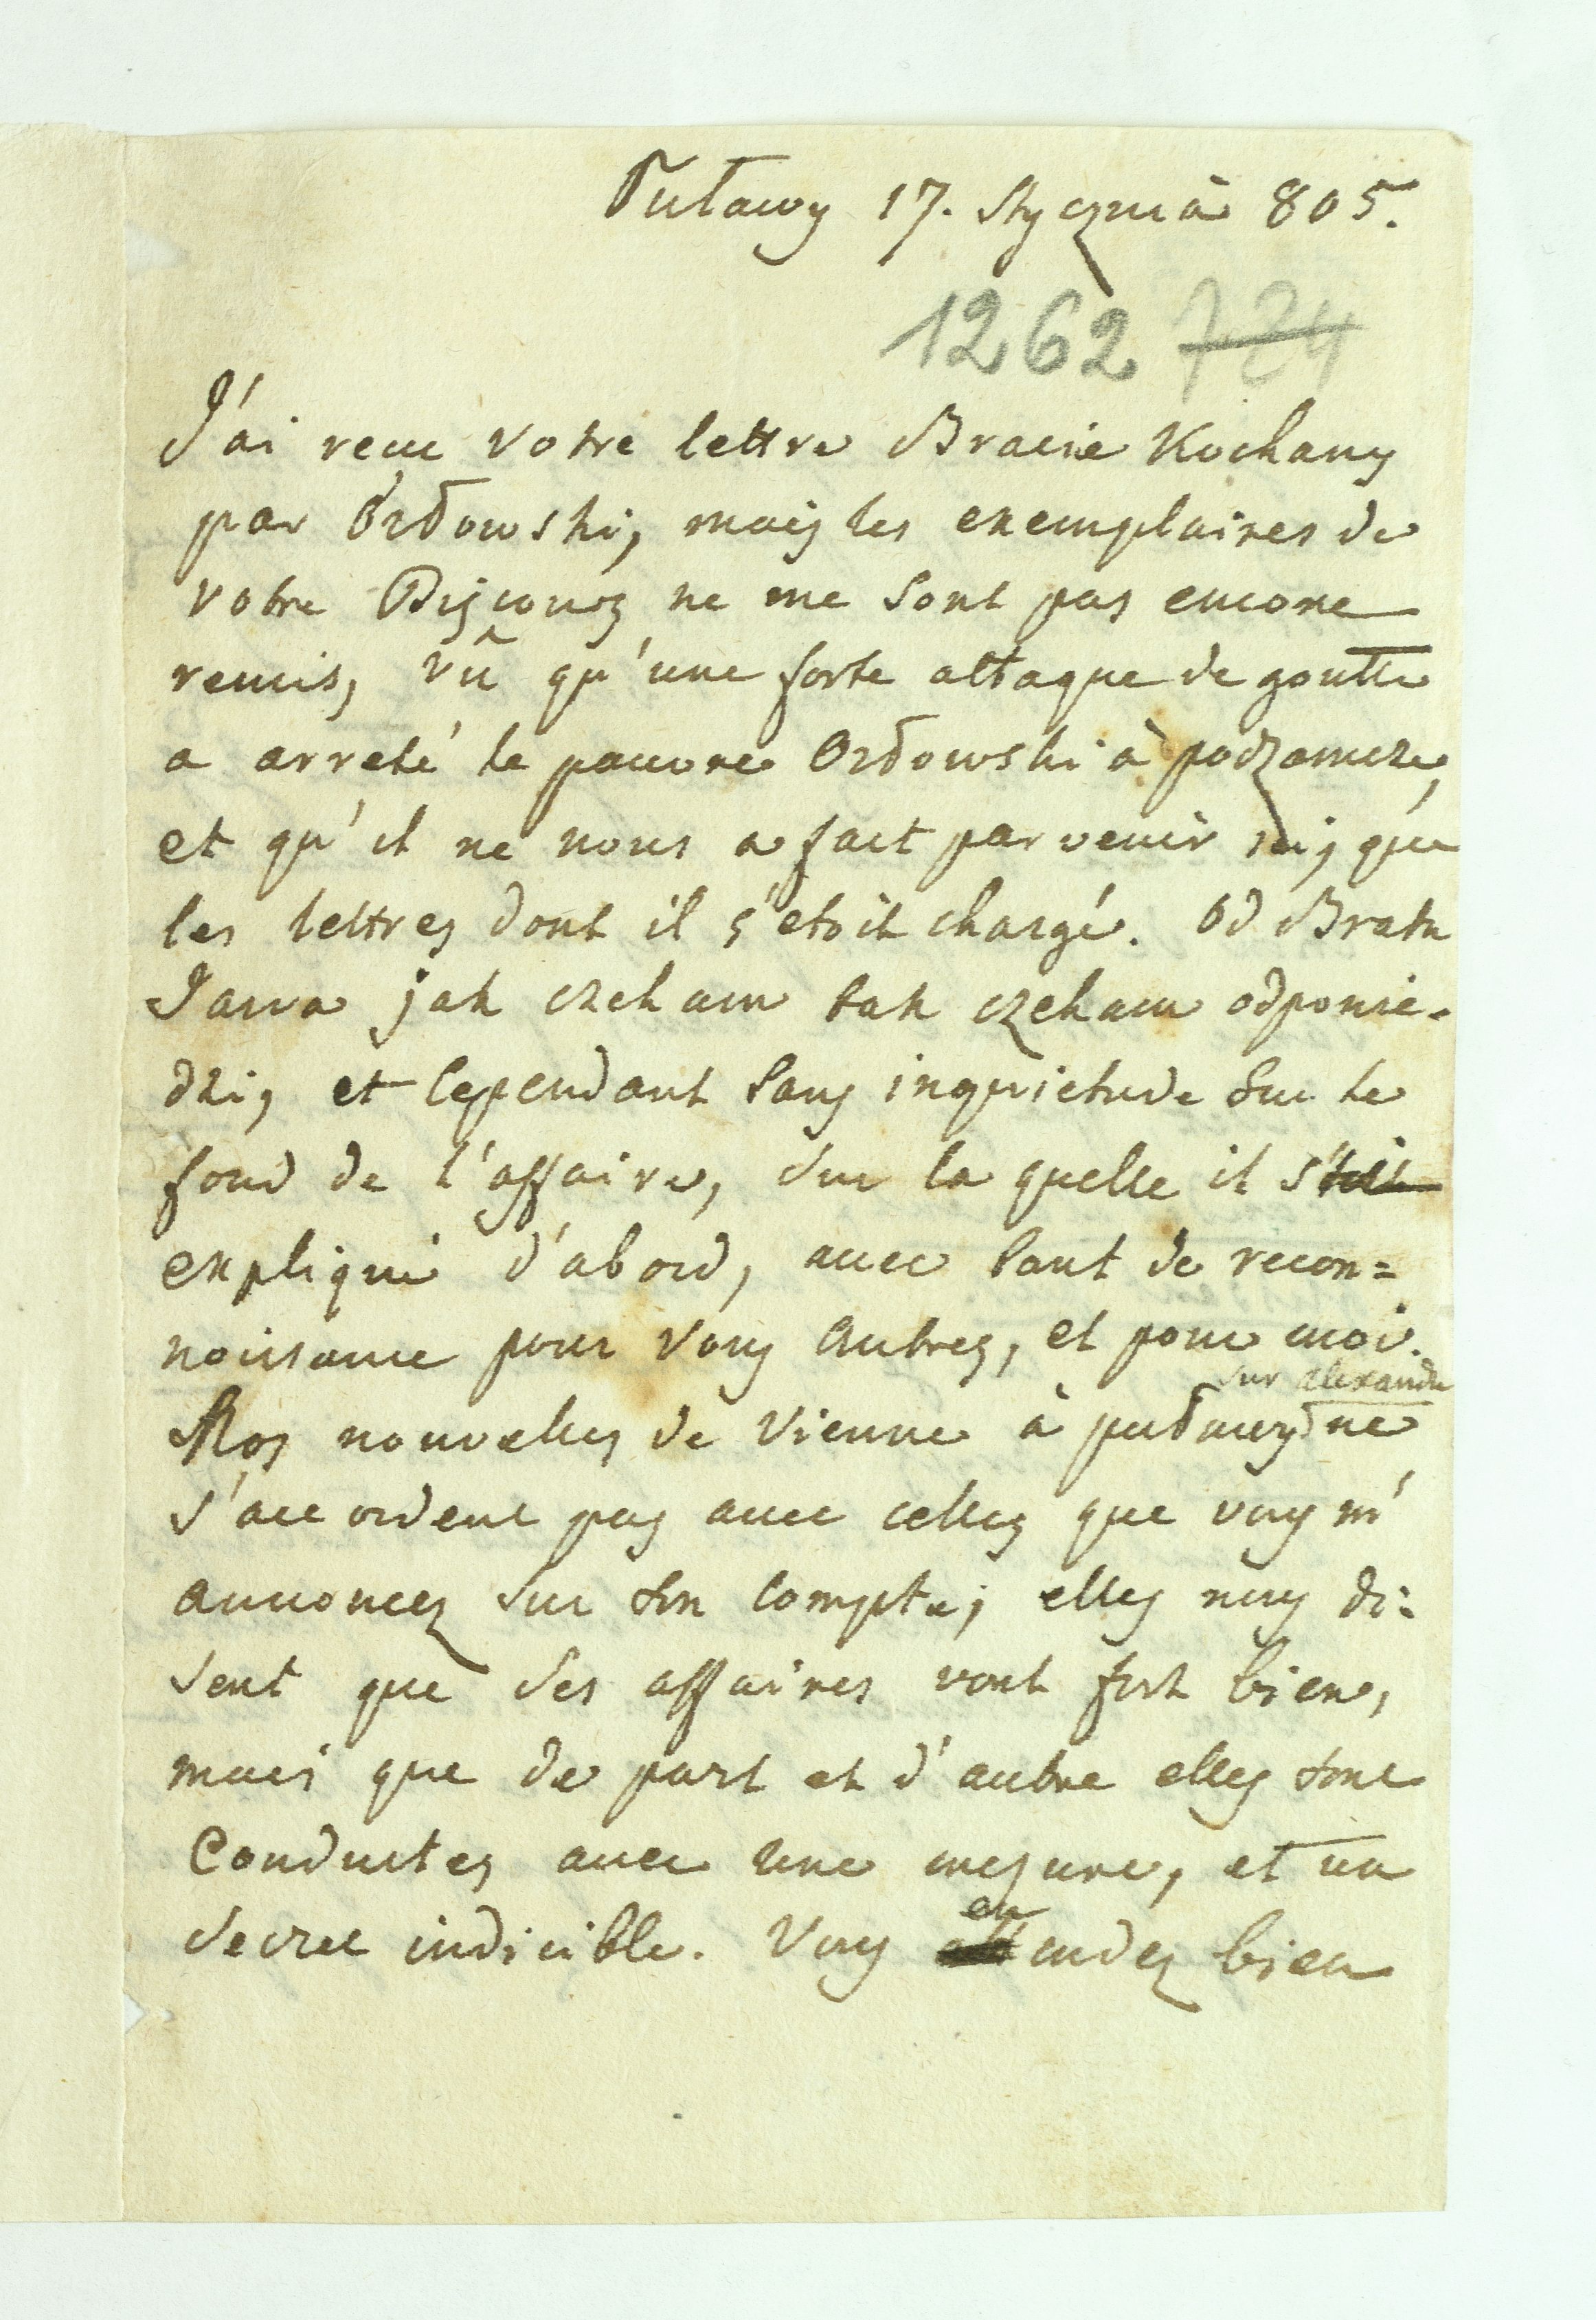 Puławy 17. Stycznià 805.
1262 724
J'ai recu votre lettre Bracie Kochany
par Orłowski, mais les exemplaires de
votre Discours ne me sont pas encore
remis, vû qu'une forte attaque de goutte
a arreté le pauvre Orłowski à podzamcze,
et qu'il ne nous a fait parvenir ici, que
les lettres dont il s'etoit chargé. Od Brata
Jana jak czekam tak czekam odpowie-
dzi, et cependant sans inquietude sur le
fond de l'affaire, sur la quelle il s'était
expliqué d'abord, avec tant de recon=
noissance pour vous autres, et pour moi.
sur alexandre
Nos nouvelles de Vienne à puławy ne
s'accordent pas avec celles que vous m'
annoncez sur son compte; elles nous di:
sent que ses affaires vont fort bien,
mais que de part et d'autre elles sont
Conduites avec une mesure, et un
secret indicible. Vous
en
endez bien